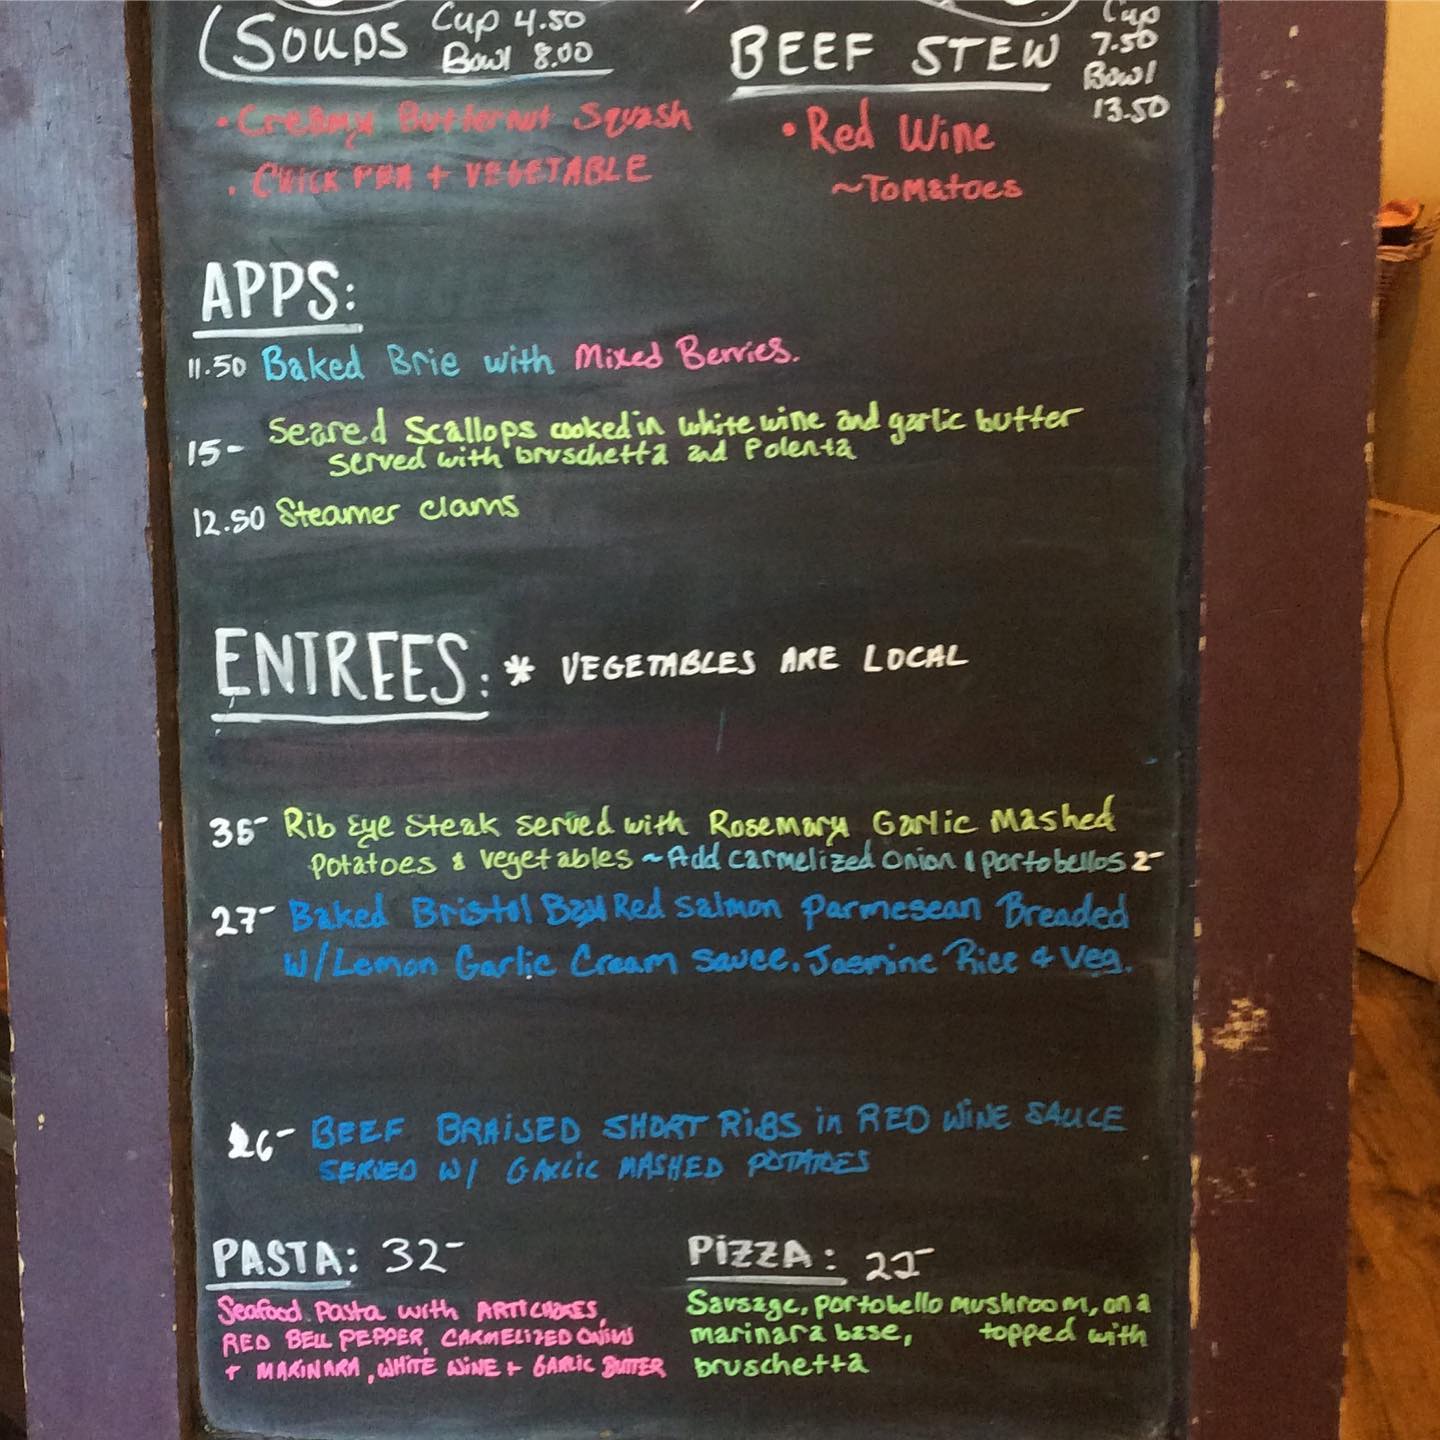 SOUPS Cup 4.50
Bowl 8.00
• Creamy Butternut Squash
. CHICK PEA + VEGETABLE
BEEF STEW Cup
7.50
Bowl
13.50
• Red Wine
~Tomatoes
APPS:
11.50 Baked Brie with Mixed Berries.
15- Seared Scallops cooked in white wine and garlic butter
served with bruschetta and Polenta
12.50 Steamer clams
ENTREES: * VEGETABLES ARE LOCAL
35- Rib Eye Steak served with Rosemary Garlic Mashed
Potatoes & vegetables ~Add carmelized onion & portobellos 2-
27- Baked Bristol Bay Red Salmon Parmesean Breaded
W/Lemon Garlic Cream Sauce. Jasmine Rice & Veg.
26- BEEF BRAISED SHORT RIBS in RED WINE SAUCE
SERVED W/ GARLIC MASHED POTATOES
PASTA: 32-
Seafood Pasta with ARTICHOKES,
RED BELL PEPPER, CARMELIZED ONIONS
+ MARINARA, WHITE WINE + GARLIC BUTTER
PIZZA: 22-
Sausage, portobello mushroom, on a
marinara base, topped with
bruschetta